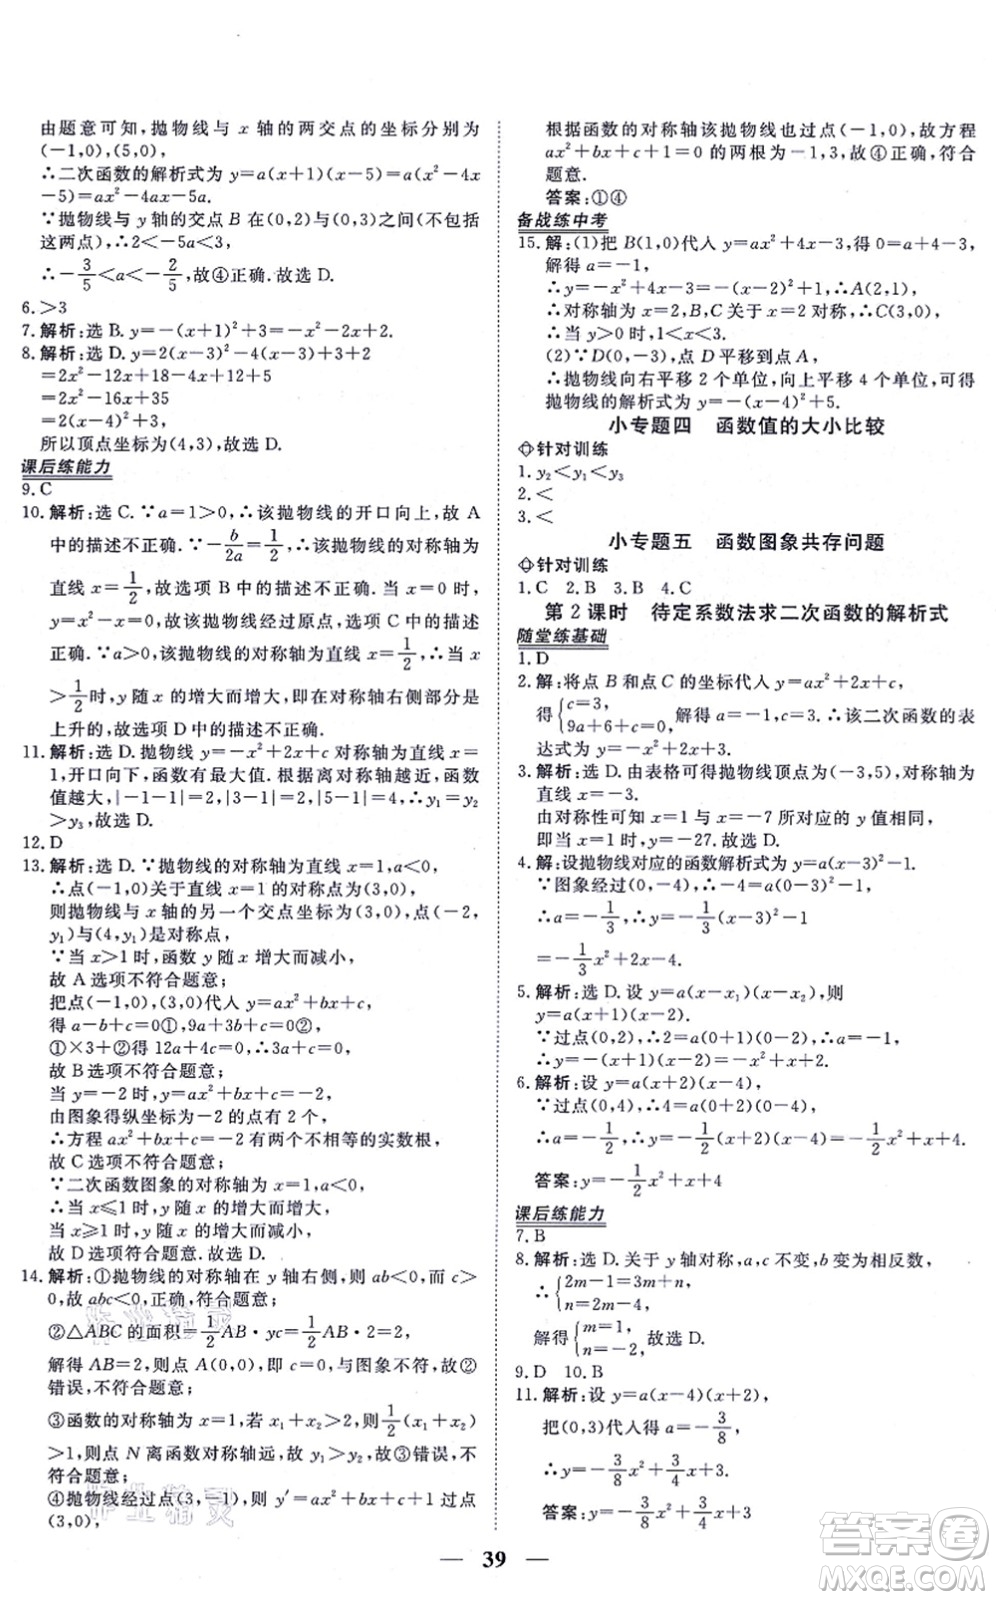 由题意可知,抛物线与 x 轴的两交点的坐标分别为
(-1,0),(5,0),
∴二次函数的解析式为 y=a(x+1)(x-5)=a(x²-4x
-5)=ax²-4ax-5a.
∵抛物线与 y 轴的交点 B 在(0,2)与(0,3)之间(不包括
这两点),∴2<-5a<3,
∴-3/5<a<-2/5,故④正确.故选 D.
6.>3
7.解析:选 B. y=-(x+1)²+3=-x²-2x+2.
8.解析:选 D. y=2(x-3)²-4(x-3)+3+2
=2x²-12x+18-4x+12+3+2
=2x²-16x+35
=2(x-4)²+3,
所以顶点坐标为(4,3),故选 D.
课后练能力
9.C
10.解析:选 C.∵a=1>0,∴该抛物线的开口向上,故 A
中的描述不正确.∵-b/2a=1/2,∴该抛物线的对称轴为
直线 x=1/2,故选项 B 中的描述不正确.当 x=0 时,
y=0,∴该抛物线经过原点,故选项 C 中的描述
正确.∵a>0,该抛物线的对称轴为直线 x=1/2,∴当 x
>1/2时,y 随 x 的增大而增大,即在对称轴右侧部分是
上升的,故选项 D 中的描述不正确.
11.解析:选 D.抛物线 y=-x²+2x+c 对称轴为直线 x=
1,开口向下,函数有最大值.根据离对称轴越近,函数
值越大,|-1-1|=2,|3-1|=2,|5-1|=4,∴y₁=y₂
>y₃,故选 D.
12.D
13.解析:选 D.∵抛物线的对称轴为直线 x=1,a<0,
∴点(-1,0)关于直线 x=1 的对称点为(3,0),
则抛物线与 x 轴的另一个交点坐标为(3,0),点(-2,
y₁)与(4,y₁)是对称点,
∵当 x>1 时,函数 y 随 x 增大而减小,
故 A 选项不符合题意;
把点(-1,0),(3,0)代入 y=ax²+bx+c
得 a-b+c=0①,9a+3b+c=0②,
①×3+②得 12a+4c=0,∴3a+c=0,
故 B 选项不符合题意;
当 y=-2 时,y=ax²+bx+c=-2,
由图象得纵坐标为-2 的点有 2 个,
∴方程 ax²+bx+c=-2 有两个不相等的实数根,
故 C 选项不符合题意;
∵二次函数图象的对称轴为 x=1,a<0,
∴当 x≤1 时,y 随 x 的增大而增大,
当 x≥1 时,y 随 x 的增大而减小,
故 D 选项符合题意.故选 D.
14.解析:①抛物线的对称轴在 y 轴右侧,则 ab<0,而 c>
0,故 abc<0,正确,符合题意;
②△ABC 的面积=1/2AB·yc=1/2×AB×2=2,
解得 AB=2,则点 A(0,0),即 c=0,与图象不符,故②
错误,不符合题意;
③函数的对称轴为 x=1,若 x₁+x₂>2,则1/2(x₁+x₂)
>1,则点 N 离函数对称轴远,故 y₁>y₂,故③错误,不
符合题意;
④抛物线经过点(3,-1),则 y′=ax²+bx+c+1 过点
(3,0),
根据函数的对称轴该抛物线也过点(-1,0),故方程
ax²+bx+c+1=0 的两根为-1,3,故④正确,符合
题意.
答案:①④
备战练中考
15.解:(1)把 B(1,0)代入 y=ax²+4x-3,得 0=a+4-3,
解得 a=-1,
∴y=-x²+4x-3=-(x-2)²+1,∴A(2,1),
∴对称轴为 x=2,B,C 关于 x=2 对称,∴C(3,0),
∴当 y>0 时,1<x<3.
(2)∵D(0,-3),点 D 平移到点 A,
∴抛物线向右平移 2 个单位,向上平移 4 个单位,可得
抛物线的解析式为 y=-(x-4)²+5.
小专题四 函数值的大小比较
针对训练
1. y₂<y₁<y₃
2.<
3.<
小专题五 函数图象共存问题
针对训练
1. C 2. B 3. B 4. C
第 2 课时 待定系数法求二次函数的解析式
随堂练基础
1.D
2.解:将点 B 和点 C 的坐标代入 y=ax²+2x+c,
得{c=3, 9a+6+c=0,解得 a=-1,c=3.∴该二次函数的表
达式为 y=-x²+2x+3.
3.解析:选 D.由表格可得抛物线过点(-3,5),对称轴为
直线 x=-3.
由对称性可知 x=1 和 x=-7 对应的 y 值应该相等,
即当 x=1 时,y=-27.故选 D.
4.解:设抛物线对应的函数解析式为 y=a(x-3)²-1.
∵图象经过(0,-4),∴-4=a(0-3)²-1,
∴a=-1/3,∴y=-1/3(x-3)²-1
=-1/3x²+2x-4.
5.解析:选 D.设 y=a(x-x₁)(x-x₂),则
y=a(x+1)(x-2).
∵过点(0,2),∴2=a(0+1)(0-2),∴a=-1,
∴y=-(x+1)(x-2)=-x²+x+2.故选 D.
6.解析:设 y=a(x+2)(x-4),
∵过点(0,4),∴4=a(0+2)(0-4),
∴a=-1/2,∴y=-1/2(x+2)(x-4)=-1/2x²+x+4.
答案:y=-1/2x²+x+4
课后练能力
7.B
8.解析:选 D.关于 y 轴对称,a,c 不变,b 变为相反数,
∴{2m-1=3m+n, n=2m-4,
解得{m=1, n=-2,故选 D.
9.D 10.B
11.解析:设 y=a(x-4)(x+2),
把(0,3)代入得 a=-3/8,
∴y=-3/8x²+3/4x+3.
答案:y=-3/8x²+3/4x+3
39
作业精灵
作业精灵
答案卷